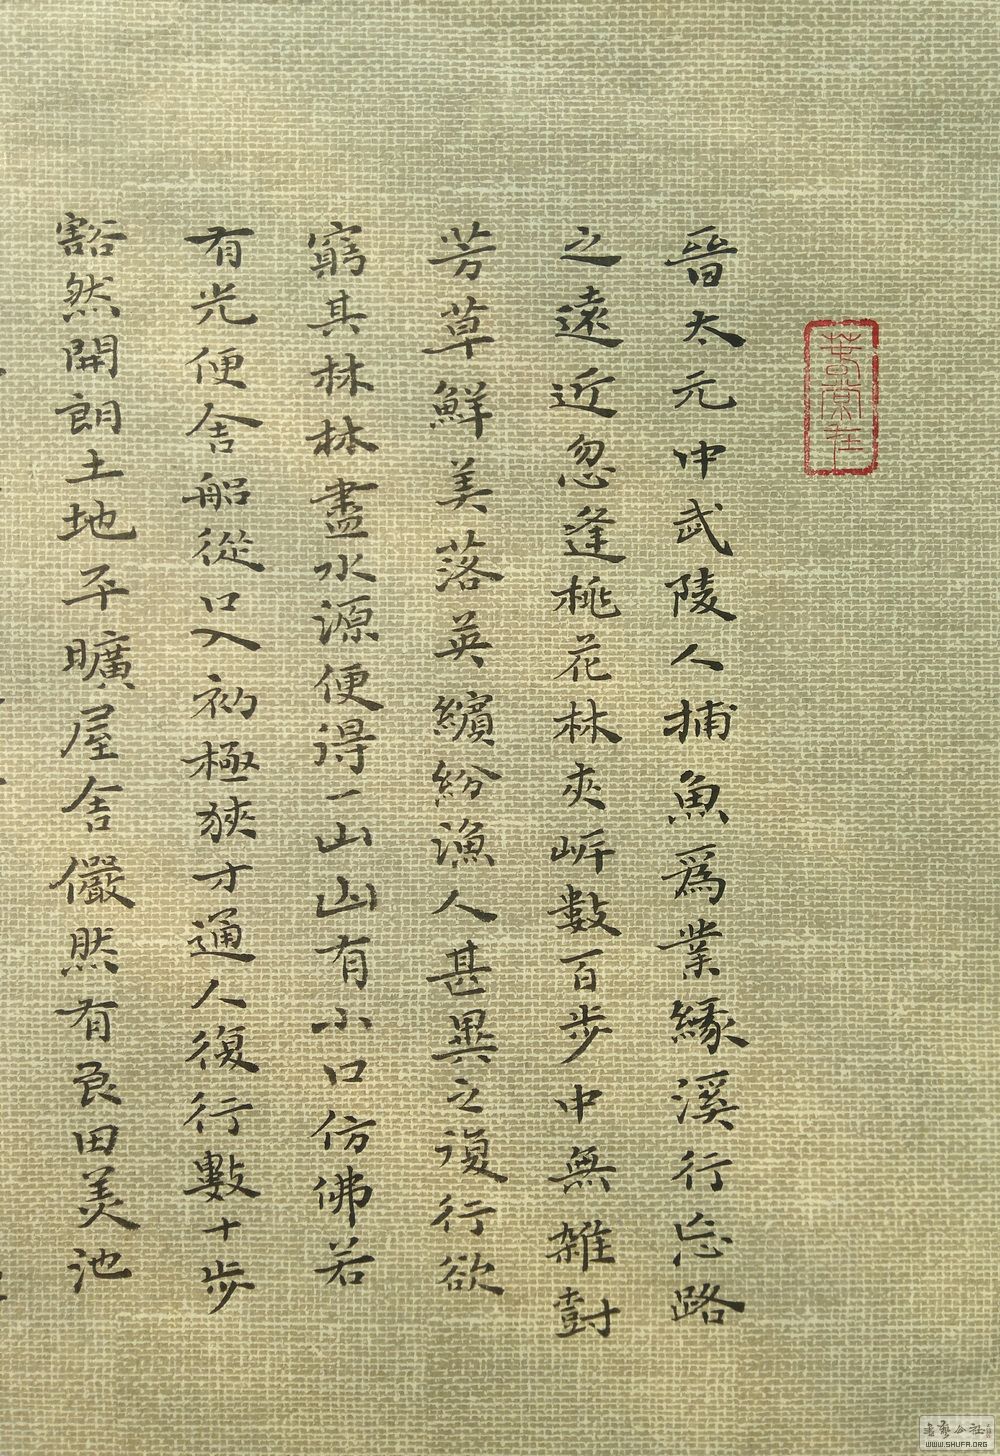 晉太元中武陵人捕魚爲業緣溪行忘路
之遠近忽逢桃花林夾岸數百步中無雜尌
芳草鮮美落英繽紛漁人甚異之復行欲
窮其林林盡水源便得一山山有小口仿佛若
有光便舍船從口入初極狹才通人復行數十步
豁然開朗土地平曠屋舍儼然有良田美池
WWW.SHUFA.ORG